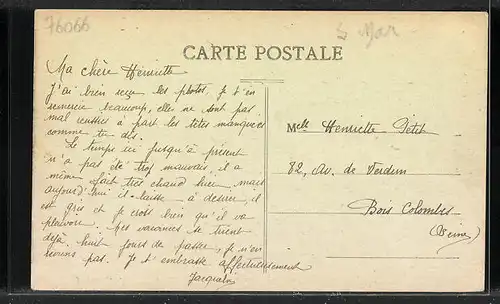 76066
CARTE POSTALE
Ma chère Henriette
J'ai bien reçu les photos, je t'en
remercie beaucoup, elles ne sont pas
mal réussies à part les têtes manquées
comme tu dis.
Le temps ici jusqu'à présent
n'a pas été trop mauvais, il a
même fait très chaud hier mais
aujourd'hui il laisse à désirer, il
est gris et je crois bien qu'il va
pleuvoir. Mes vacances se tirent
déjà huit jours de passés, je n'en
reviens pas. Je t'embrasse affectueusement
Melle Henriette Petit
82, Av. de Verdun
Bois Colombes
(Seine)